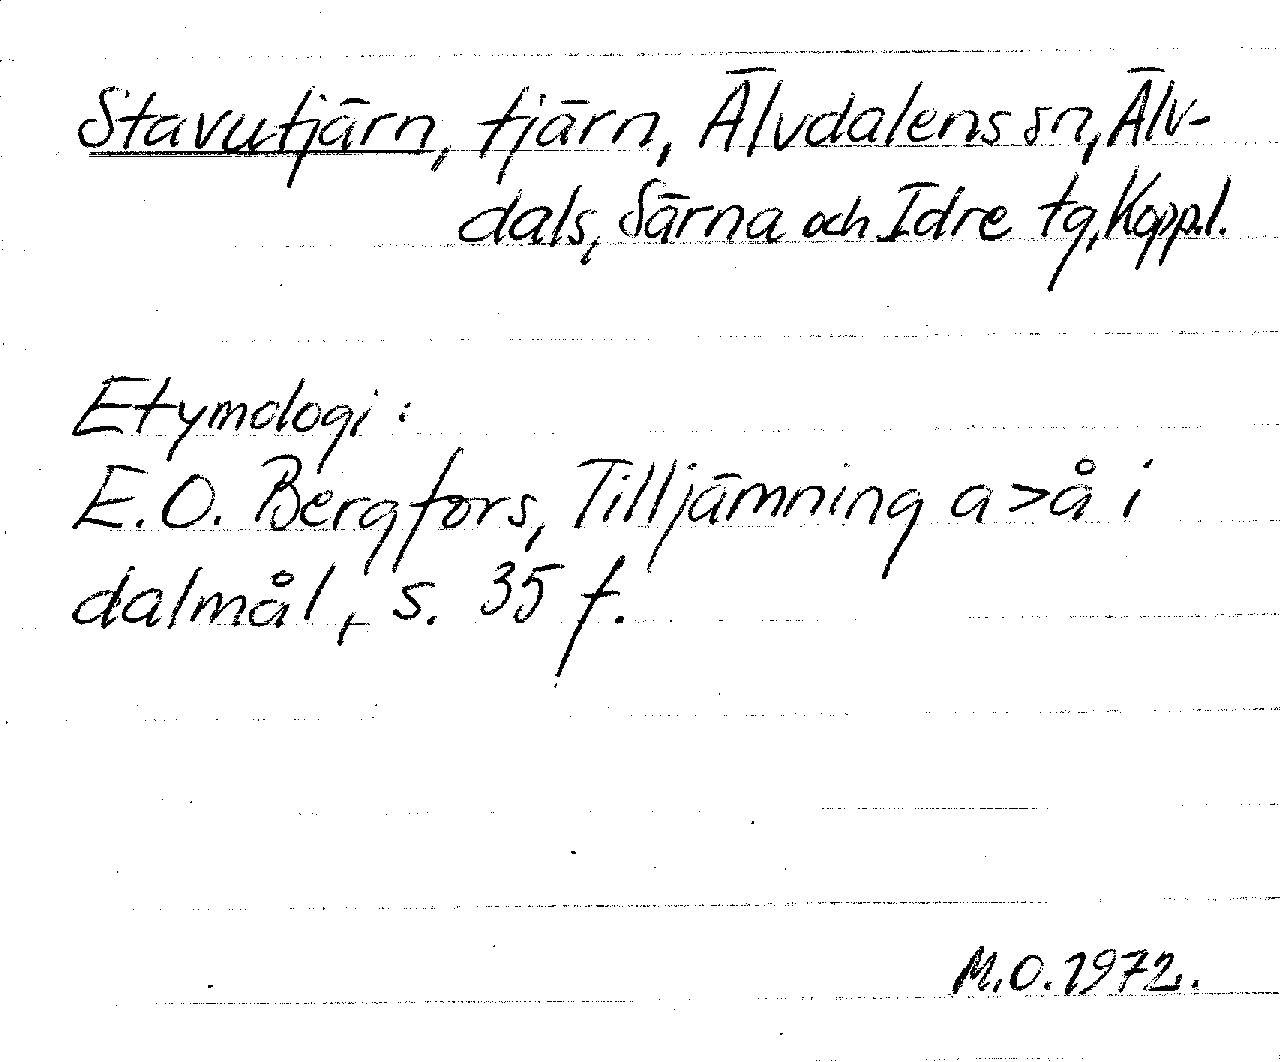 Stavutjärn, tjärn, Älvdalens sn, Älv-
dals, Särna och Idre tg, Kopp.l.
Etymologi:
E.O. Bergfors, Tilljämning a>å i
dalmål, s. 35 f.
M.O. 1972.